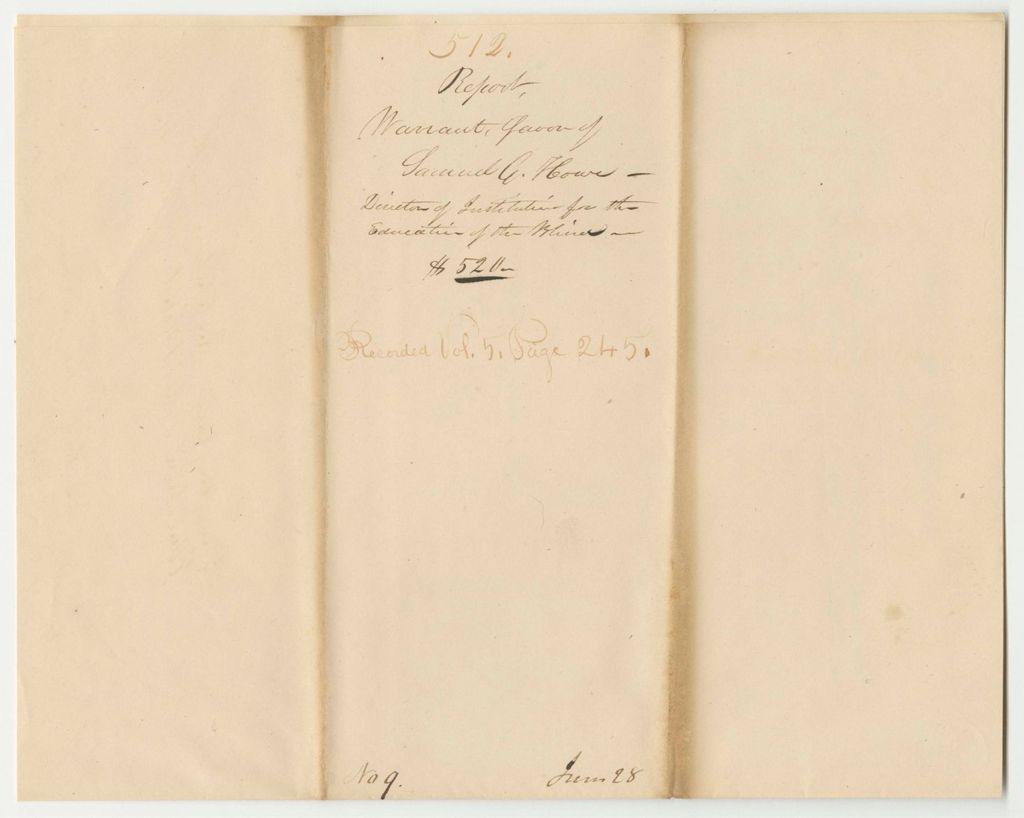 512.
Report,
Warrant, favor of
Samuel G. Howe —
Director of Institution for the
Education of the Blind —
$ 520—
Recorded Vol. 5. Page 245.
No 9.
June 28